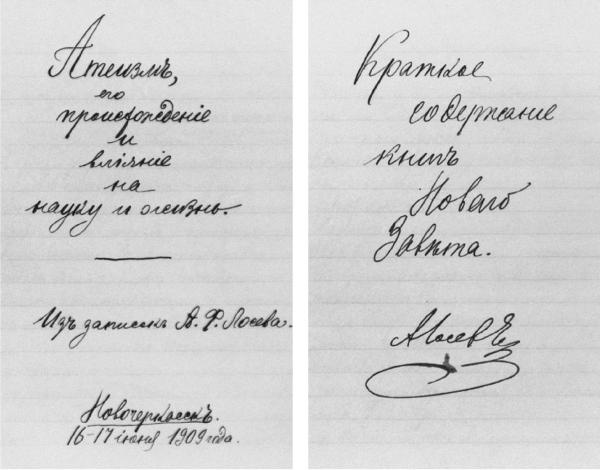 Атеизмъ,
его
происхожденіе
и
вліяніе
на
науку и жизнь.
Изъ записокъ А. Ф. Лосева.
Новочеркасскъ.
16-17 іюня 1909 года.
Краткое
содержание
книгъ
Новаго
Завѣта.
АЛосевъ